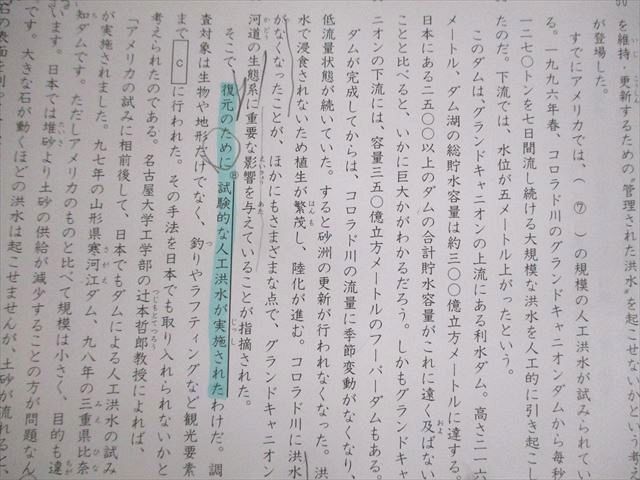 を維持・更新するための〝管理された洪水〟を起こせないかという考え
が登場した。
すでにアメリカでは、(　⑦　)の規模の人工洪水が試みられてい
る。一九九六年春、コロラド川のグランドキャニオンダムから毎秒
一二七〇トンを七日間流し続ける大規模な洪水を人工的に引き起こし
たのだ。下流では、水位が五メートル上がったという。
このダムは、グランドキャニオンの上流にある利水ダム。高さ二一六
メートル、ダム湖の総貯水容量は約三〇〇億立方メートルに達する。
日本にある二五〇〇以上のダムの合計貯水容量がこれに遠く及ばない
ことと比べると、いかに巨大かがわかるだろう。しかもグランドキャ
ニオンの下流には、容量三五〇億立方メートルのフーバーダムもある。
ダムが完成してからは、コロラド川の流量に季節変動がなくなり、
低流量状態が続いていた。すると砂洲の更新が行われなくなった。洪
水で浸食されないため植生が繁茂し、陸化が進む。コロラド川に洪水
がなくなったことが、ほかにもさまざまな点で、グランドキャニオン
河道の生態系に重要な影響を与えていることが指摘された。
そこで、復元のために⑧試験的な人工洪水が実施されたわけだ。調
査対象は生物や地形だけでなく、釣りやラフティングなど観光要素
まで C に行われた。その手法を日本でも取り入れられないかと
考えられたのである。名古屋大学工学部の辻本哲郎教授によれば、
「アメリカの試みに相前後して、日本でもダムによる人工洪水の試み
が実施されました。九七年の山形県寒河江ダム、九八年の三重県比奈
知ダムです。ただしアメリカのものと比べて規模は小さく、目的も違
います。日本では堆砂より土砂の供給が減少することの方が問題なん
です。大きな石が動くほどの洪水は起こせませんが、土砂が流れると、